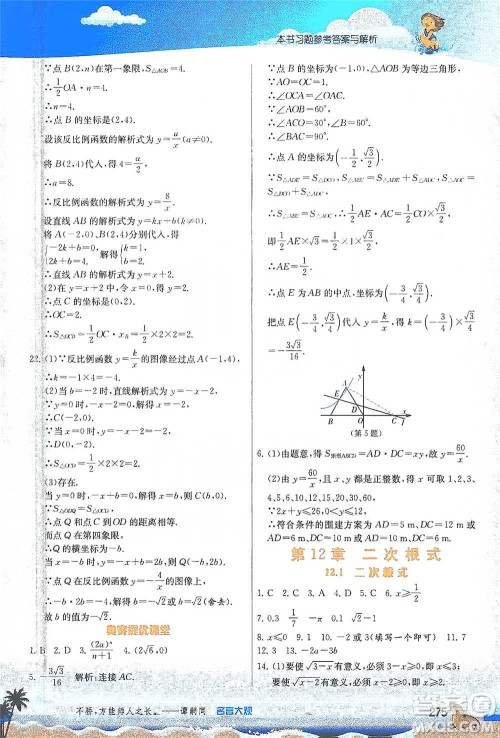 本书习题参考答案与解析
∵点 B(2,n)在第一象限,S△AOB=4.
∴1/2 OA·n=4.∴n=4.
∴点 B 的坐标是(2,4).
设该反比例函数的解析式为 y=a/x(a≠0).
将 B(2,4)代人,得 4=a/2.
∴a=8.
∴反比例函数的解析式为 y=8/x.
设直线 AB 的解析式为 y=kx+b(k≠0).
将 A(-2,0),B(2,4)分别代人,得
{-2k+b=0, 2k+b=4. 解得{k=1, b=2.
∴直线 AB 的解析式为 y=x+2.
(2)在 y=x+2 中,令 x=0,得 y=2.
∴点 C 的坐标是(0,2).
∴OC=2.
∴S△OCB=1/2 OC·xB=1/2×2×2=2.
22. (1)∵反比例函数 y=k/x 的图像经过点 A(-1,4),
∴k=-1×4=-4.
(2)当 b=-2 时,直线解析式为 y=-x-2.
当 y=0 时,-x-2=0,解得 x=-2.
∴C(-2,0).
当 x=0 时,y=-x-2=-2.
∴D(0,-2).
∴S△OCD=1/2×2×2=2.
(3)存在.
当 y=0 时,-x+b=0,解得 x=b.
∴C(b,0).
∵S△ODQ=S△OCD,
∴点 Q 和点 C 到 OD 的距离相等.
而点 Q 在第四象限,
∴点 Q 的横坐标为-b.
当 x=-b 时,y=-x+b=2b.
∴Q(-b,2b).
∵点 Q 在反比例函数 y=-4/x 的图像上,
∴-b·2b=-4,解得 b=-√2或 b=√2(舍去).
∴b 的值为-√2.
奥赛提优课堂
1. B 2. D 3. (2a)ⁿ/(n+1) 4. (2√6,0)
5. 3√3/16 解析:连接 AC.
∵点 B 的坐标为(-1,0),△AOB 为等边三角形,
∴AO=OC=1.
∵∠AOB=60°,
∴∠ACO=30°,∠B=60°.
∴∠BAC=90°.
∴点 A 的坐标为(-1/2,√3/2).
∵S△ADE=S△DCO,S△AEC=S△ADE+S△ADC,
S△AOC=S△DCO+S△ADC,
∴S△AEC=S△AOC=1/2 AE·AC=1/2 CO×√3/2,
即 1/2 AE·√3=1/2×1×√3/2.
∴AE=1/2.
∴点 E 为 AB 的中点,坐标为(-3/4,√3/4).
把点 E(-3/4,√3/4)代人 y=k/x,得 k=-3/4×√3/4=
-3√3/16.
(第 5 题)
6. (1)由题意,得 S矩形ABCD=AD·DC=xy,故 y=60/x.
(2)由 y=60/x,且 x,y 都是正整数,得 x 可取 1,2,3,
4,5,6,10,12,15,20,30,60.
∵2x+y≤26,0<y≤12,
∴符合条件的围建方案为 AD=5 m,DC=12 m
或 AD=6 m,DC=10 m 或 AD=10 m,DC=6 m.
第 12 章 二次根式
12.1 二次根式
1. C 2. C 3. A 4. D 5. C 6. x≥1/2
7. 0.3 1/3 -π 0 8. -6
9. 1 10. 0 或 3 或 6(填写一个即可) 11. 0
12. 1 13. D
14. (1)要使√(3-x)有意义,必须 3-x≥0,解得 x≤3.
不骄,方能师人之长。——谭嗣同 名言大观
275